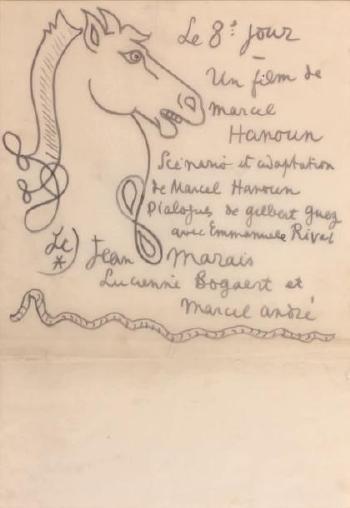 Le 8e jour
Un film de
Marcel
Hanoun
Scénario et adaptation
de Marcel Hanoun
Dialogues de gilbert guez
avec Emmanuele Riva
Jean Marais
Lucienne Bogaert et
Marcel andré